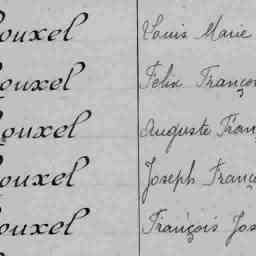 ouxel Louis Marie
ouxel Felix Franço
ouxel Auguste Fran
ouxel Joseph Franç
ouxel François Jos